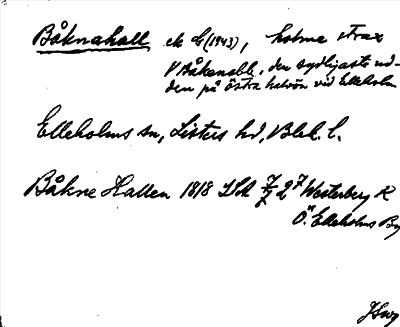 Båknahall ek G (1943), holme strax
V Båkanabb, den sydligaste ud-
den på östra halvön vid Elleholm
Elleholms sn, Listers hd, Blek. l.
Båkne Hallen 1818 LSA Westerberg K
Ö. Elleholms By